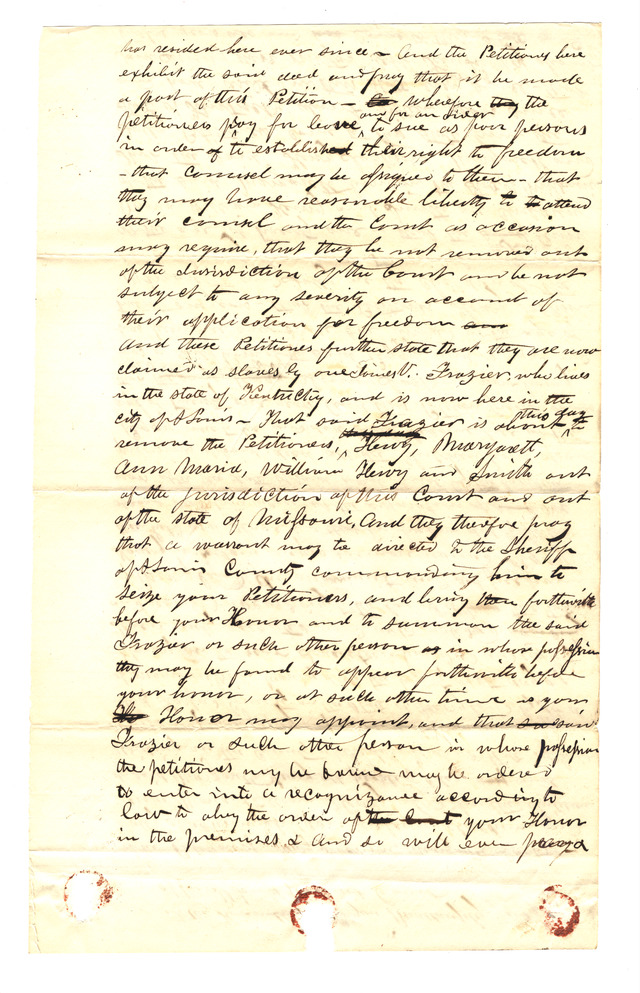 has resided here ever since – And the Petitioners here
exhibit the said deed and pray that it be made
a part of this Petition – wherefore the
and for an order
petitioners pray for leave, to sue as poor persons
in order to establish their right to freedom
– that counsel may be assigned to them – that
they may have reasonable liberty to attend
their counsel and the Court as occasion
may require, that they be not removed out
of the Jurisdiction of the Court and be not
subject to any severity on account of
their application for freedom and
And these Petitioners further state that they are now
claimed as slaves by one James V. Frazier, who lives
in the state of Kentucky, and is now here in the
city of St Louis – That said Frazier is about this day to
remove the Petitioners, Henry, Margarett,
Ann Maria, William Henry and Smith out
of the jurisdiction of this Court and out
of the state of Missouri, And they therefore pray
that a warrant may be directed to the Sheriff
of St Louis County commanding him to
seize your Petitioners, and bring them forthwith
before your Honor and to summon the said
Frazier or such other person in whose possession
they may be found to appear forthwith before
your honor, or at such other time as your
Honor may appoint, and that said
Frazier or such other person in whose possession
the petitioners may be found may be ordered
to enter into a recognizance according to
law to obey the order of the Court your Honor
in the premises & And so will ever pray &